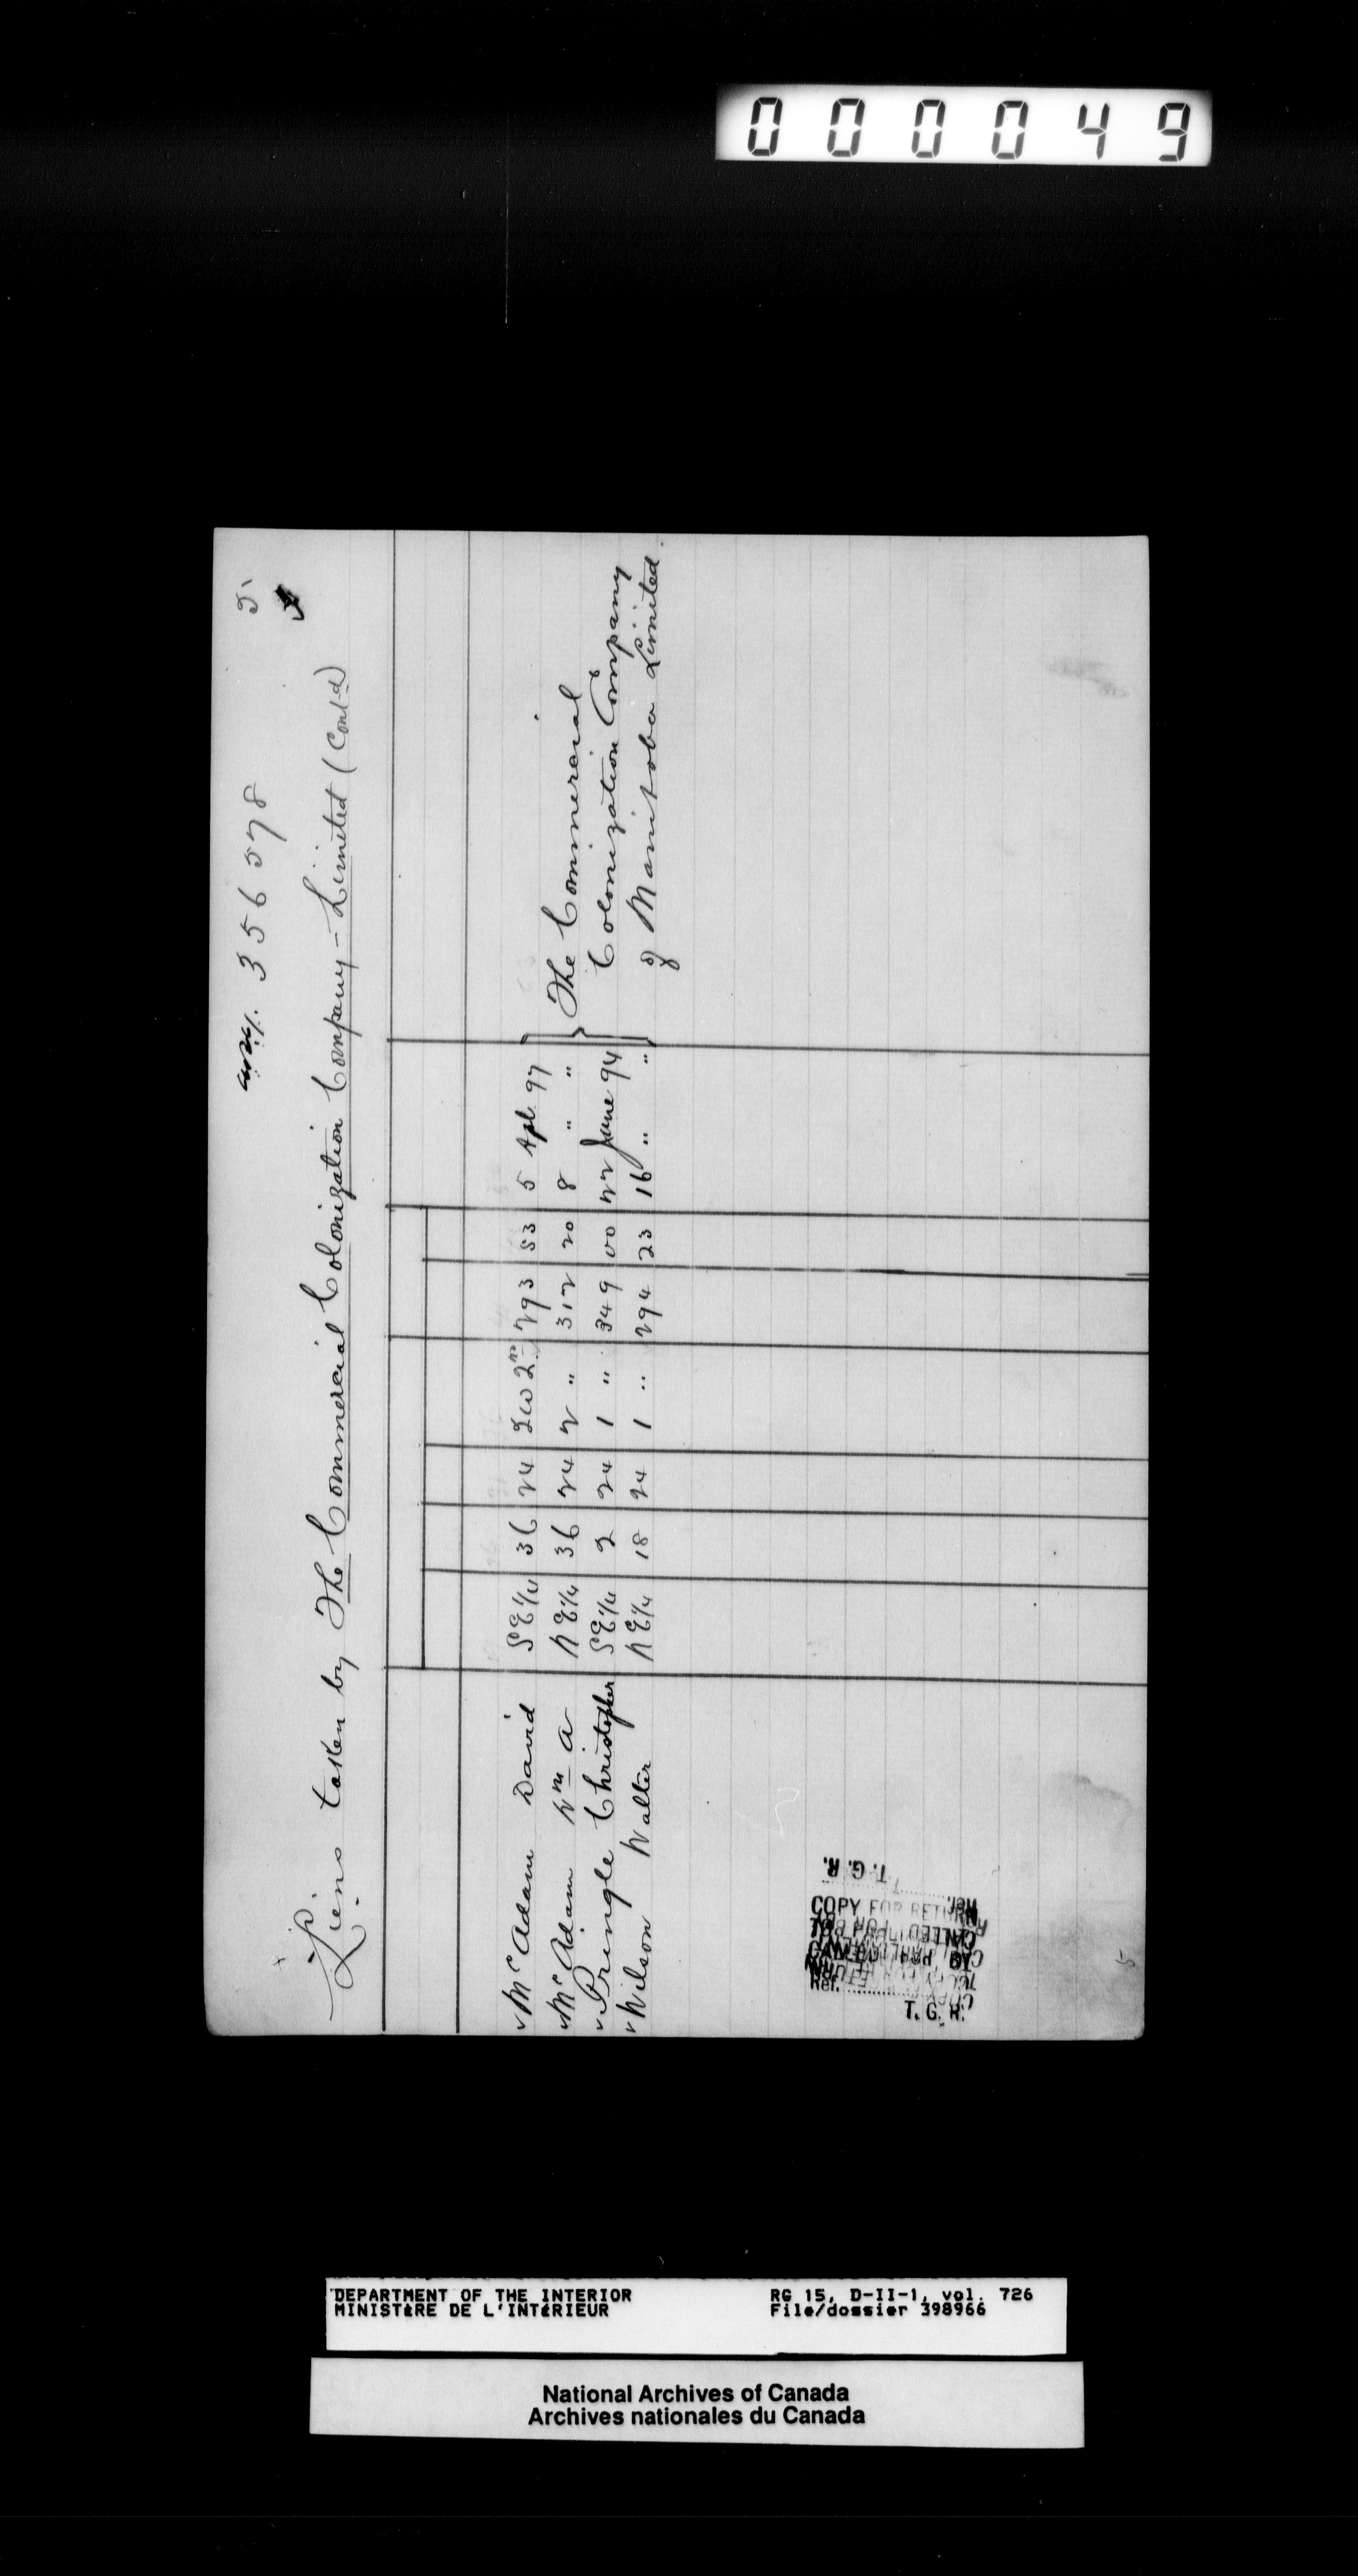 000049
356578
5
Liens taken by The Commercial Colonization Company - Limited (Cont-d)
McAdam David S E 1/4 36 24 2 W 2nd 293 53 5 Apl. 97
McAdam Wm A N E 1/4 36 24 2 " 312 20 8 " "
Pringle Christopher S E 1/4 2 24 1 " 349 00 22 June 94
Wilson Walter N E 1/4 18 24 1 " 294 23 16 " "
The Commercial
Colonization Company
of Manitoba Limited.
T. G. R.
COPY FOR RETURN
Ref.
T. G. R.
5
DEPARTMENT OF THE INTERIOR
MINISTèRE DE L'INTéRIEUR
RG 15, D-II-1, vol. 726
File/dossier 398966
National Archives of Canada
Archives nationales du Canada